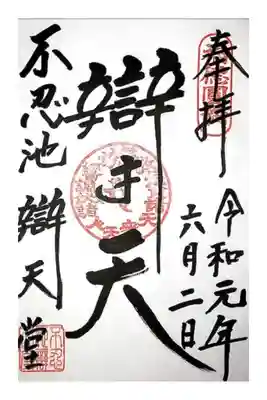 奉拝
令和元年
六月二日
辯才天
不忍池
辯天堂